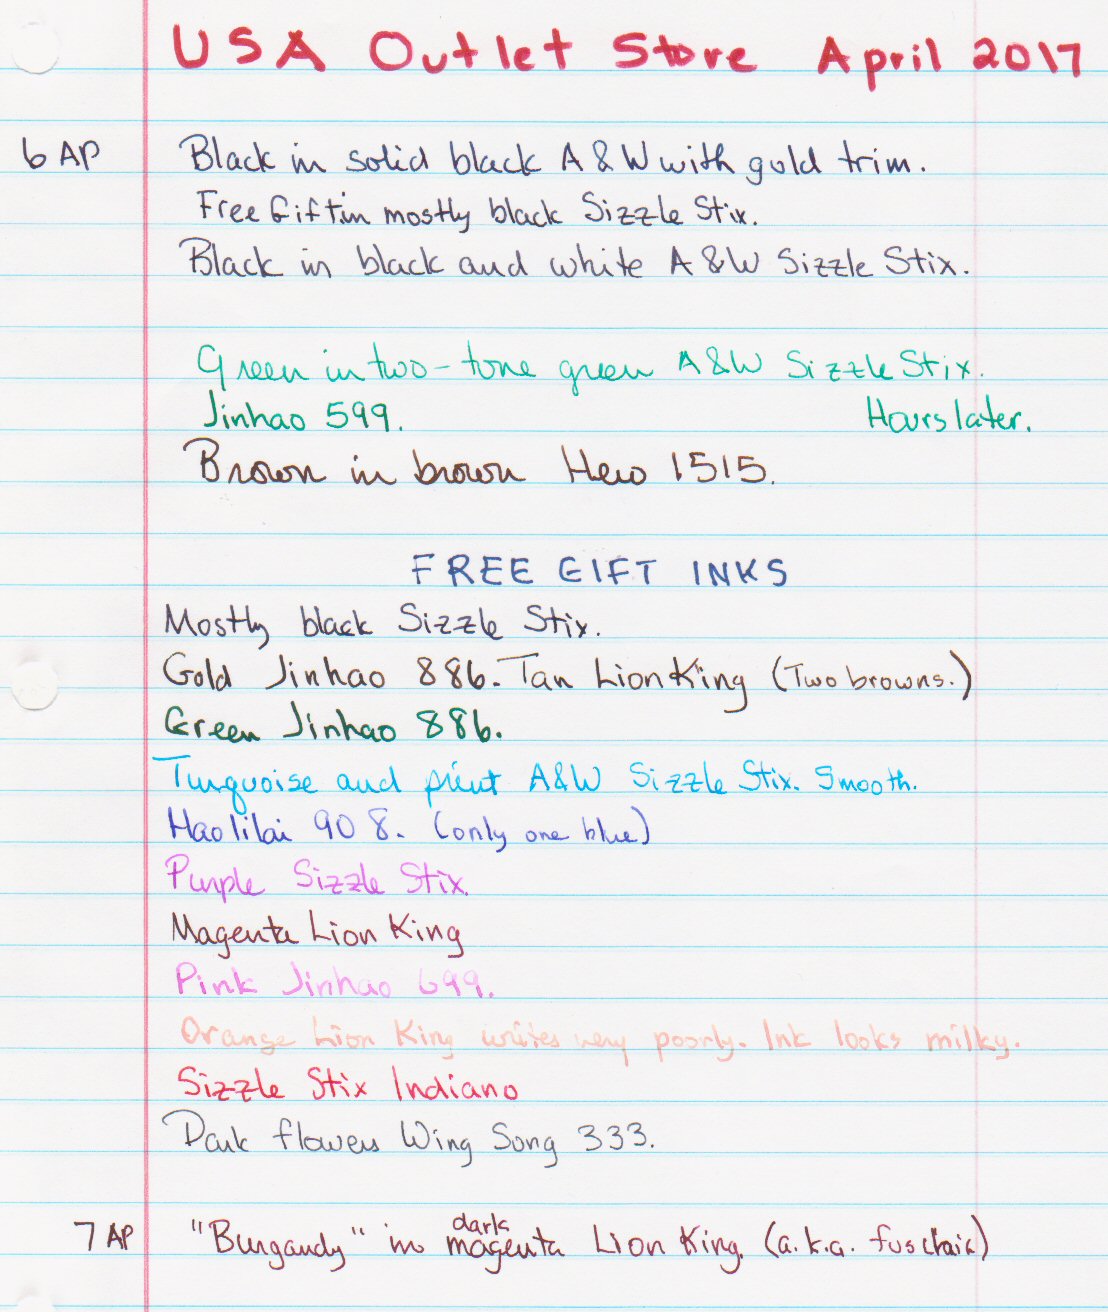 USA Outlet Store April 2017
6 AP Black in solid black A & W with gold trim.
Free Gift in mostly black Sizzle Stix.
Black in black and white A & W Sizzle Stix.
Green in two-tone green A & W Sizzle Stix.
Jinhao 599. Hours later.
Brown in brown Hero 1515.
FREE GIFT INKS
Mostly black Sizzle Stix.
Gold Jinhao 886. Tan Lion King (Two browns.)
Green Jinhao 886.
Turquoise and print A&W Sizzle Stix. Smooth.
Haolilai 908. (only one blue)
Purple Sizzle Stix.
Magenta Lion King
Pink Jinhao 699.
Orange Lion King writes very poorly. Ink looks milky.
Sizzle Stix Indiano
Dark flowers Wing Song 333.
7 AP "Burgandy" in dark magenta Lion King. (a.k.a. fuschaia)